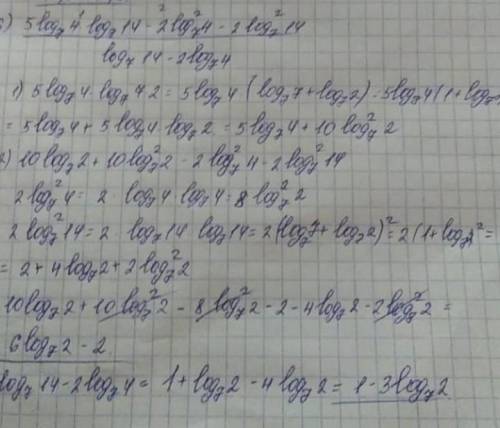 5log₇4·log₇14 - 2log₇²4 - 2log₇²14
log₇14 - 2log₇4
1) 5log₇4·log₇7·2 = 5log₇4(log₇7 + log₇2) = 5log₇4(1 + log₇
= 5log₇4 + 5log₇4·log₇2 = 5log₇4 + 10log₇²2
10log₇2 + 10log₇²2 - 2log₇²4 - 2log₇²14
2log₇²4 = 2·log₇4·log₇4 = 8log₇²2
2log₇²14 = 2·log₇14·log₇14 = 2(log₇7 + log₇2)² = 2(1 + log₇2)² =
= 2 + 4log₇2 + 2log₇²2
10log₇2 + 10log₇²2 - 8log₇²2 - 2 - 4log₇2 - 2log₇²2 =
6log₇2 - 2
log₇14 - 2log₇4 = 1 + log₇2 - 4log₇2 = 1 - 3log₇2